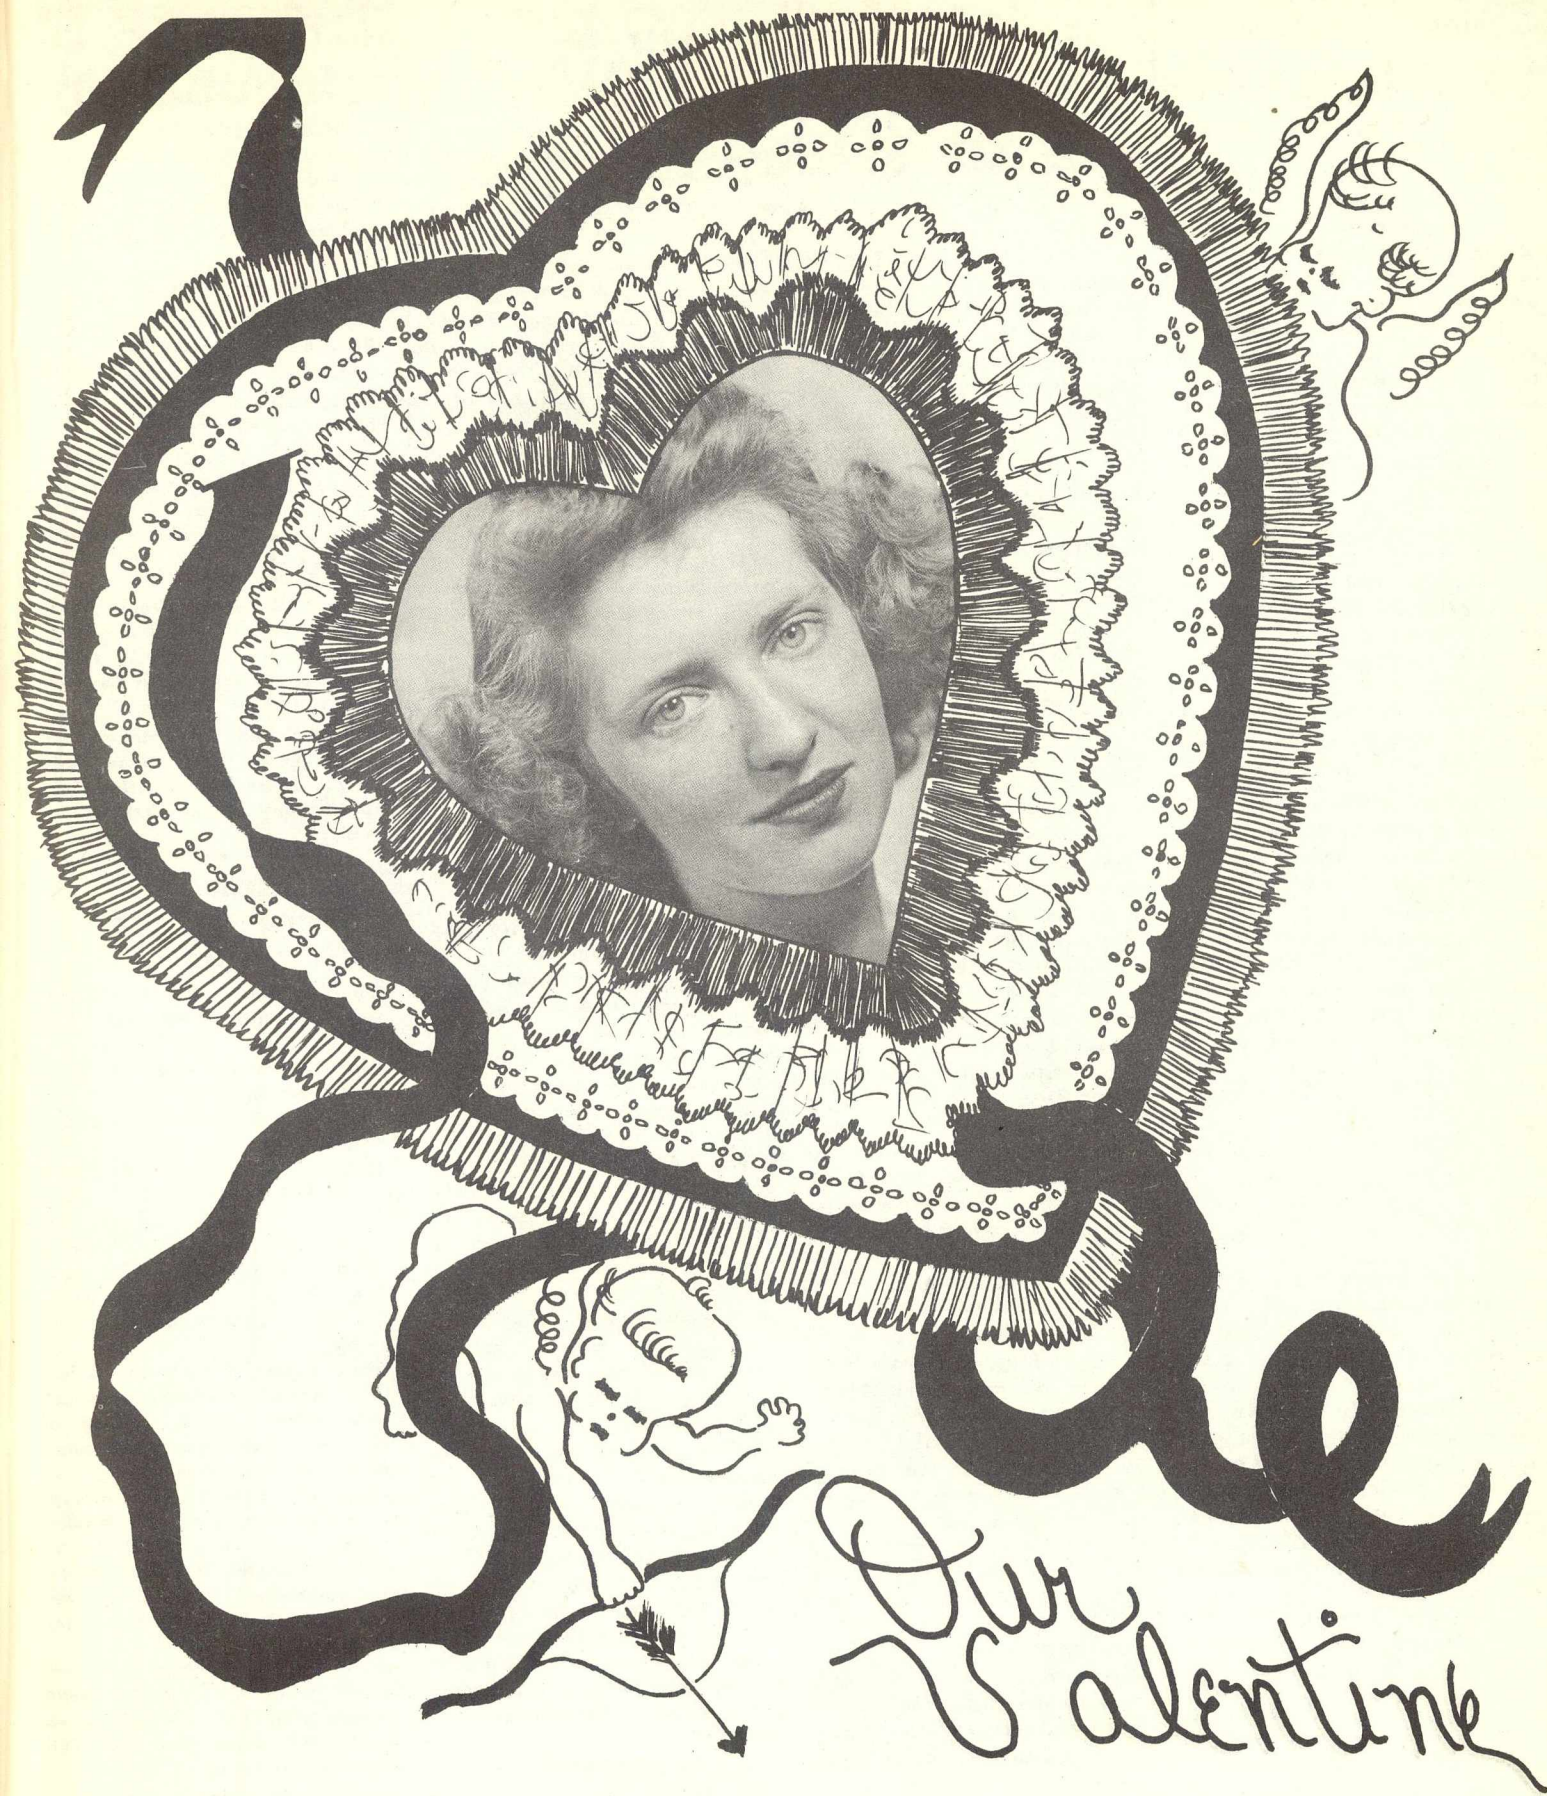 Our
Valentine